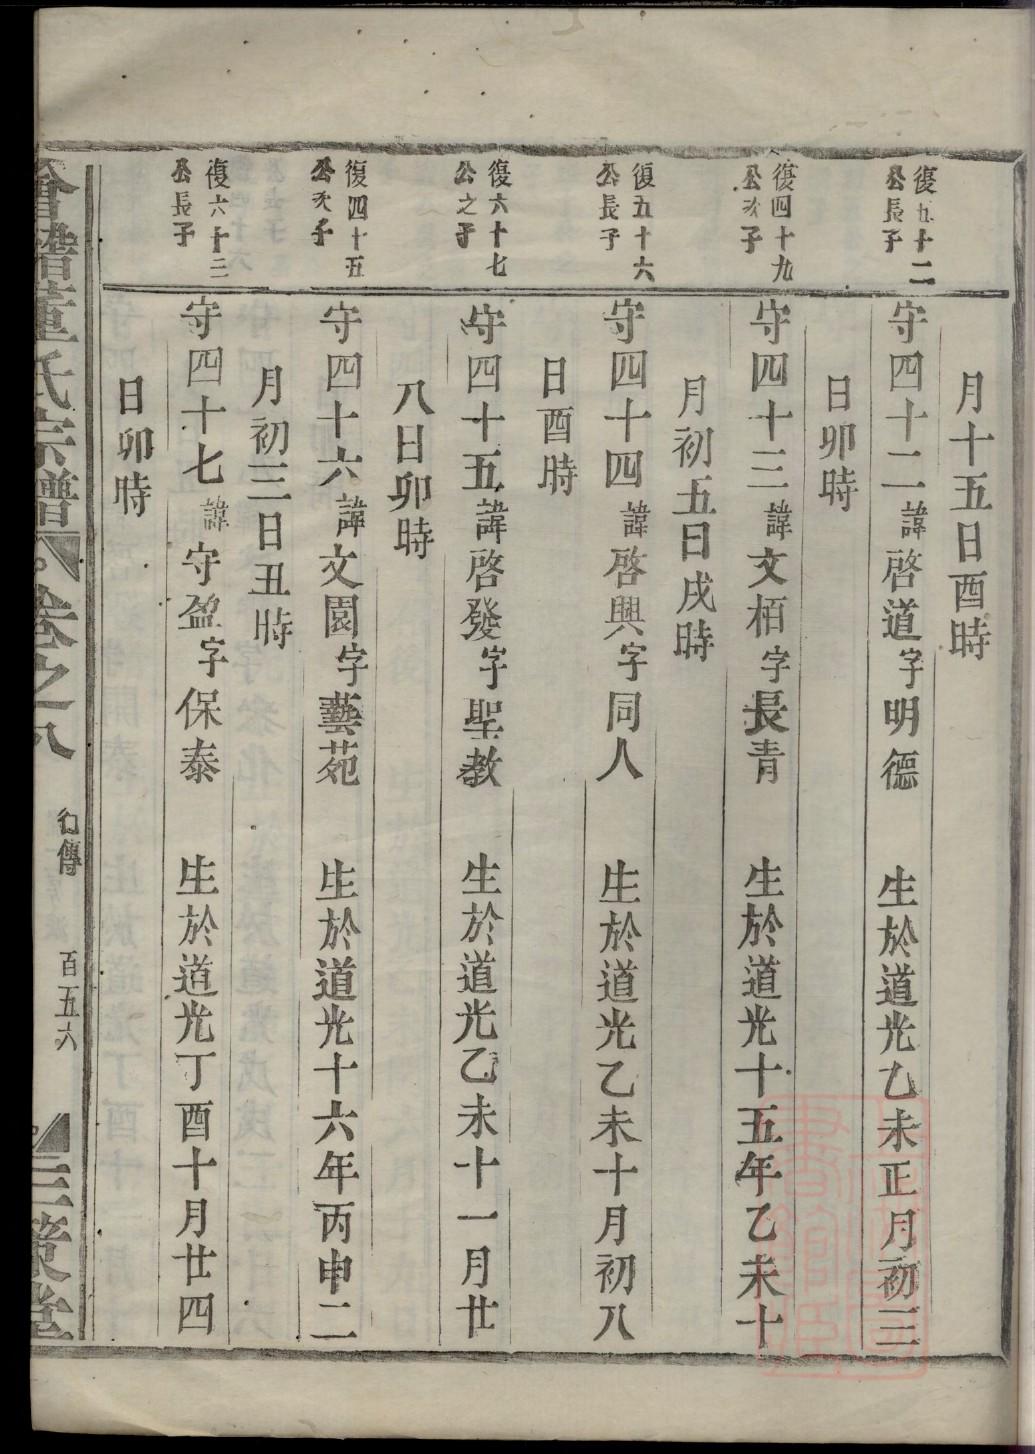 月十五日酉時
復五十二
公長子
守四十二諱啓道字明德 生於道光乙未正月初三
日卯時
復四十九
公次子
守四十三諱文栢字長青 生於道光十五年乙未十
月初五日戌時
復五十六
公長子
守四十四諱啓興字同人 生於道光乙未十月初八
日酉時
復六十七
公之子
守四十五諱啓發字聖教 生於道光乙未十一月廿
八日卯時
復四十五
公次子
守四十六諱文園字藝苑 生於道光十六年丙申二
月初三日丑時
復六十三
公長子
守四十七諱守盈字保泰 生於道光丁酉十月廿四
日卯時
會稽董氏宗譜 卷之八 行傳 百五六 三策堂